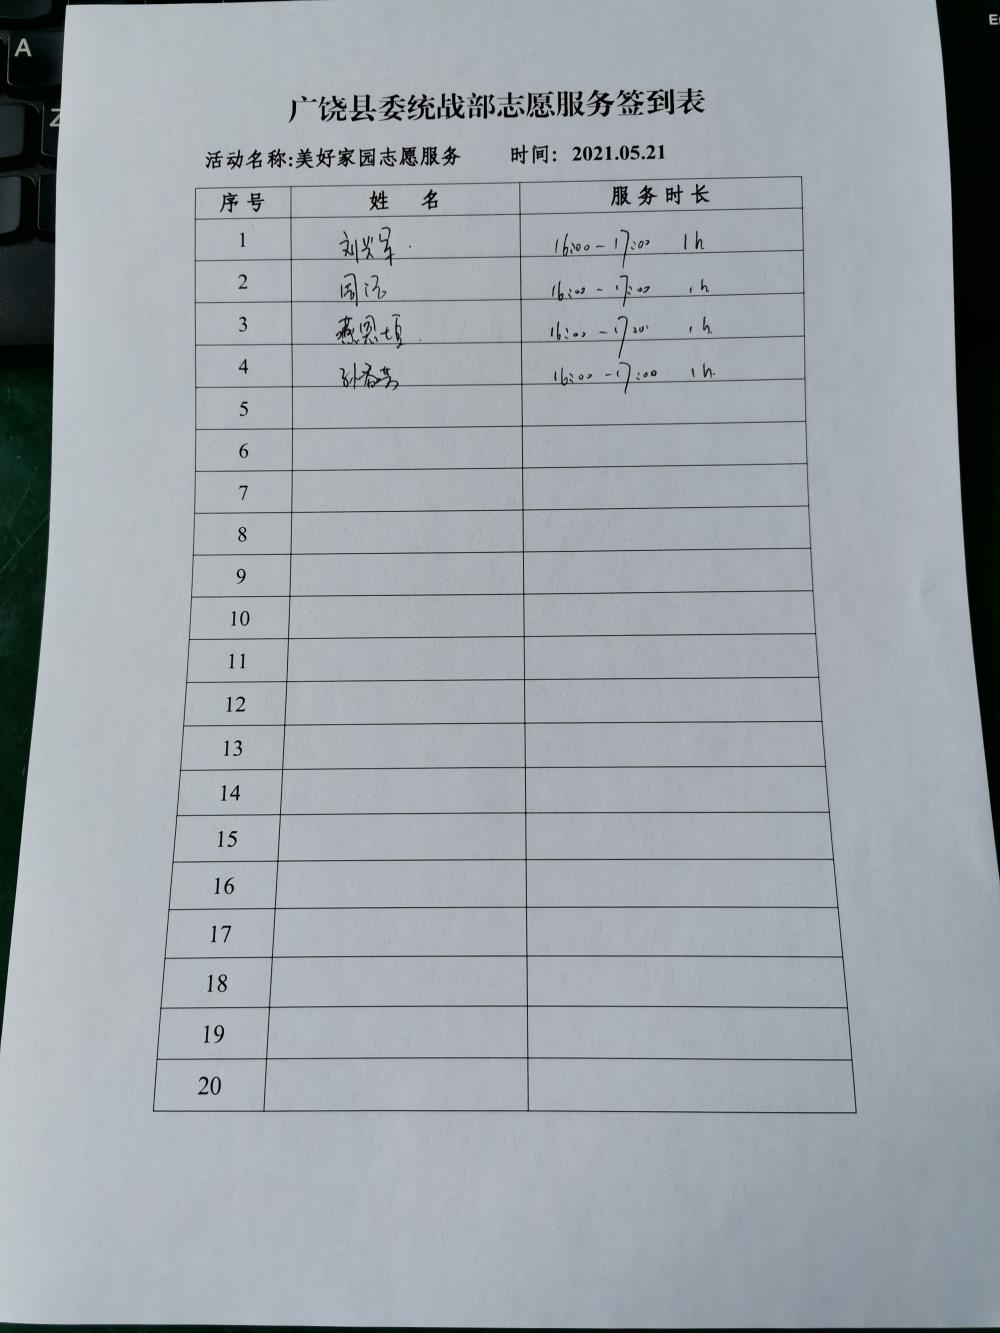 A
Z
E
广饶县委统战部志愿服务签到表
活动名称:美好家园志愿服务 时间: 2021.05.21
序号 姓 名 服务时长
1 刘兴军 16:00-17:00 1h
2 周 16:00-17:00 1h
3 燕恩 16:00-17:00 1h
4 孙春 16:00-17:00 1h
5
6
7
8
9
10
11
12
13
14
15
16
17
18
19
20